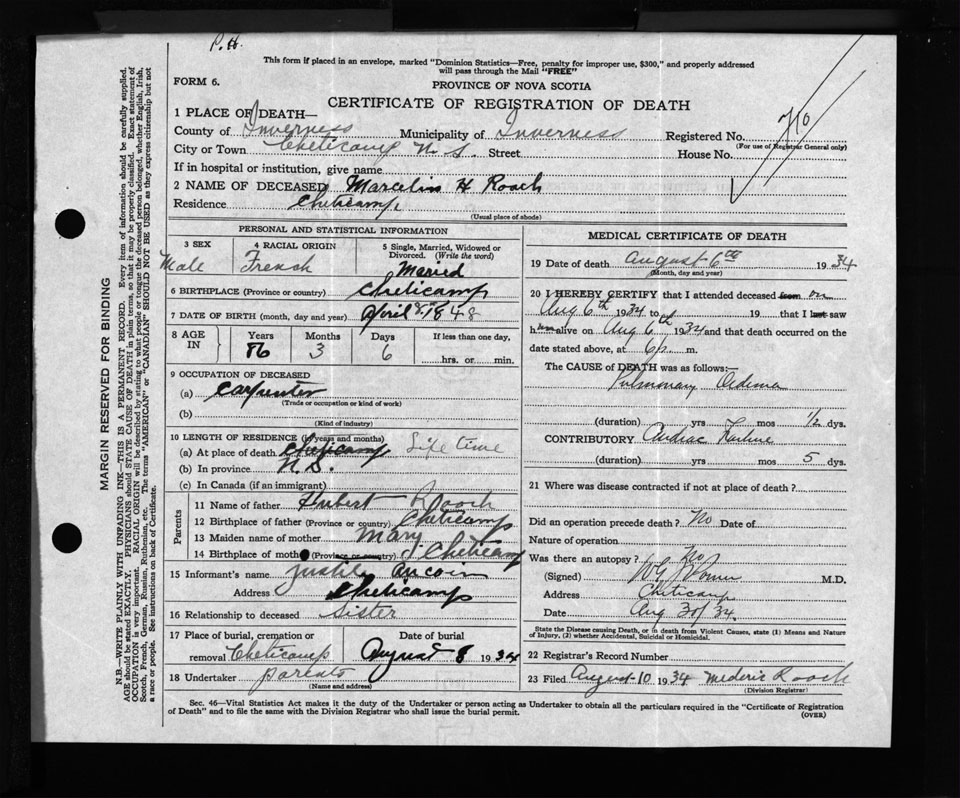 P. H.
This form if placed in an envelope, marked "Dominion Statistics—Free, penalty for improper use, $300," and properly addressed
will pass through the Mail "FREE"
FORM 6.
PROVINCE OF NOVA SCOTIA
CERTIFICATE OF REGISTRATION OF DEATH
1 PLACE OF DEATH—
County of Inverness Municipality of Inverness Registered No.
(For use of Registrar General only)
City or Town Cheticamp N. S. Street House No.
If in hospital or institution, give name
2 NAME OF DECEASED Marcelin H Roach
Residence Cheticamp
(Usual place of abode)
PERSONAL AND STATISTICAL INFORMATION
3 SEX Male
4 RACIAL ORIGIN French
5 Single, Married, Widowed or Divorced. (Write the word) Maried
6 BIRTHPLACE (Province or country) Cheticamp
7 DATE OF BIRTH (month, day and year) April 8, 1848
8 AGE IN Years Months Days If less than one day,
86 3 6 hrs. or min.
9 OCCUPATION OF DECEASED
(a) Carpenter
(Trade or occupation or kind of work)
(b)
(Kind of industry)
10 LENGTH OF RESIDENCE (in years and months)
(a) At place of death Cheticamp Life time
(b) In province N. S.
(c) In Canada (if an immigrant)
Parents
11 Name of father Hubert Roach
12 Birthplace of father (Province or country) Cheticamp
13 Maiden name of mother Mary
14 Birthplace of mother (Province or country) Cheticamp
15 Informant's name Justile Aucoin
Address Cheticamp
16 Relationship to deceased Sister
17 Place of burial, cremation or removal Cheticamp Date of burial August 8 1934
18 Undertaker parents
(Name and address)
MEDICAL CERTIFICATE OF DEATH
19 Date of death August 6th 1934
(Month, day and year)
20 I HEREBY CERTIFY that I attended deceased from on
Aug 6th 1934 to 19 that I last saw
him alive on Aug 6 1934 and that death occurred on
date stated above, at 6 p. m.
The CAUSE of DEATH was as follows:
Pulmonary Oedema
(duration) yrs mos ½ dys.
CONTRIBUTORY Cardiac Failure
(duration) yrs mos 5 dys.
21 Where was disease contracted if not at place of death?
Did an operation precede death? No Date of
Nature of operation
Was there an autopsy? No
(Signed) M.D.
Address Cheticamp
Date Aug 30/34.
State the Disease causing Death, or in death from Violent Causes, state (1) Means and Nature
of Injury, (2) whether Accidental, Suicidal or Homicidal.
22 Registrar's Record Number
23 Filed August 10 1934 Mederic Roach
(Division Registrar)
Sec. 46—Vital Statistics Act makes it the duty of the Undertaker or person acting as Undertaker to obtain all the particulars required in the "Certificate of Registration
of Death" and to file the same with the Division Registrar who shall issue the burial permit. (OVER)
MARGIN RESERVED FOR BINDING
N.B.—WRITE PLAINLY WITH UNFADING INK—THIS IS A PERMANENT RECORD. Every item of information should be carefully supplied.
AGE should be stated EXACTLY. PHYSICIANS should STATE CAUSE OF DEATH in plain terms, so that it may be properly classified. Exact statement of
OCCUPATION is very important. RACIAL ORIGIN will be described by stating to what people or tongue the deceased person belonged, whether English, Irish,
Scotch, French, German, Russian, Ruthenian, etc. The terms "AMERICAN" or "CANADIAN" SHOULD NOT BE USED as they express citizenship but not
a race or people. See instructions on back of Certificate.